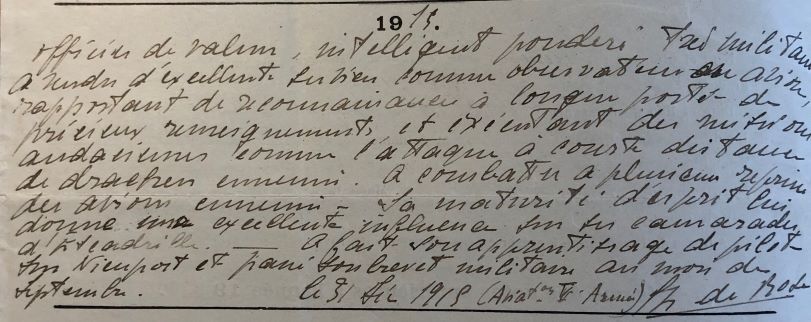 1915.
officier de valeur, intelligent pondéré très militaire
a rendu d'excellents services comme observateur en avion
rapportant de reconnaissances à longue portée de
précieux renseignements, et exécutant des missions
audacieuses comme l'attaque à courte distance
de drachen ennemi. A combattu à plusieurs reprises
des avions ennemis - Sa maturité d'esprit lui
donne une excellente influence sur ses camarades
d'escadrille. — A fait son apprentissage de pilote
sur Nieuport et passé son brevet militaire au mois de
septembre. le 31 Déc 1915 (Aviat on V Armée) de Rose